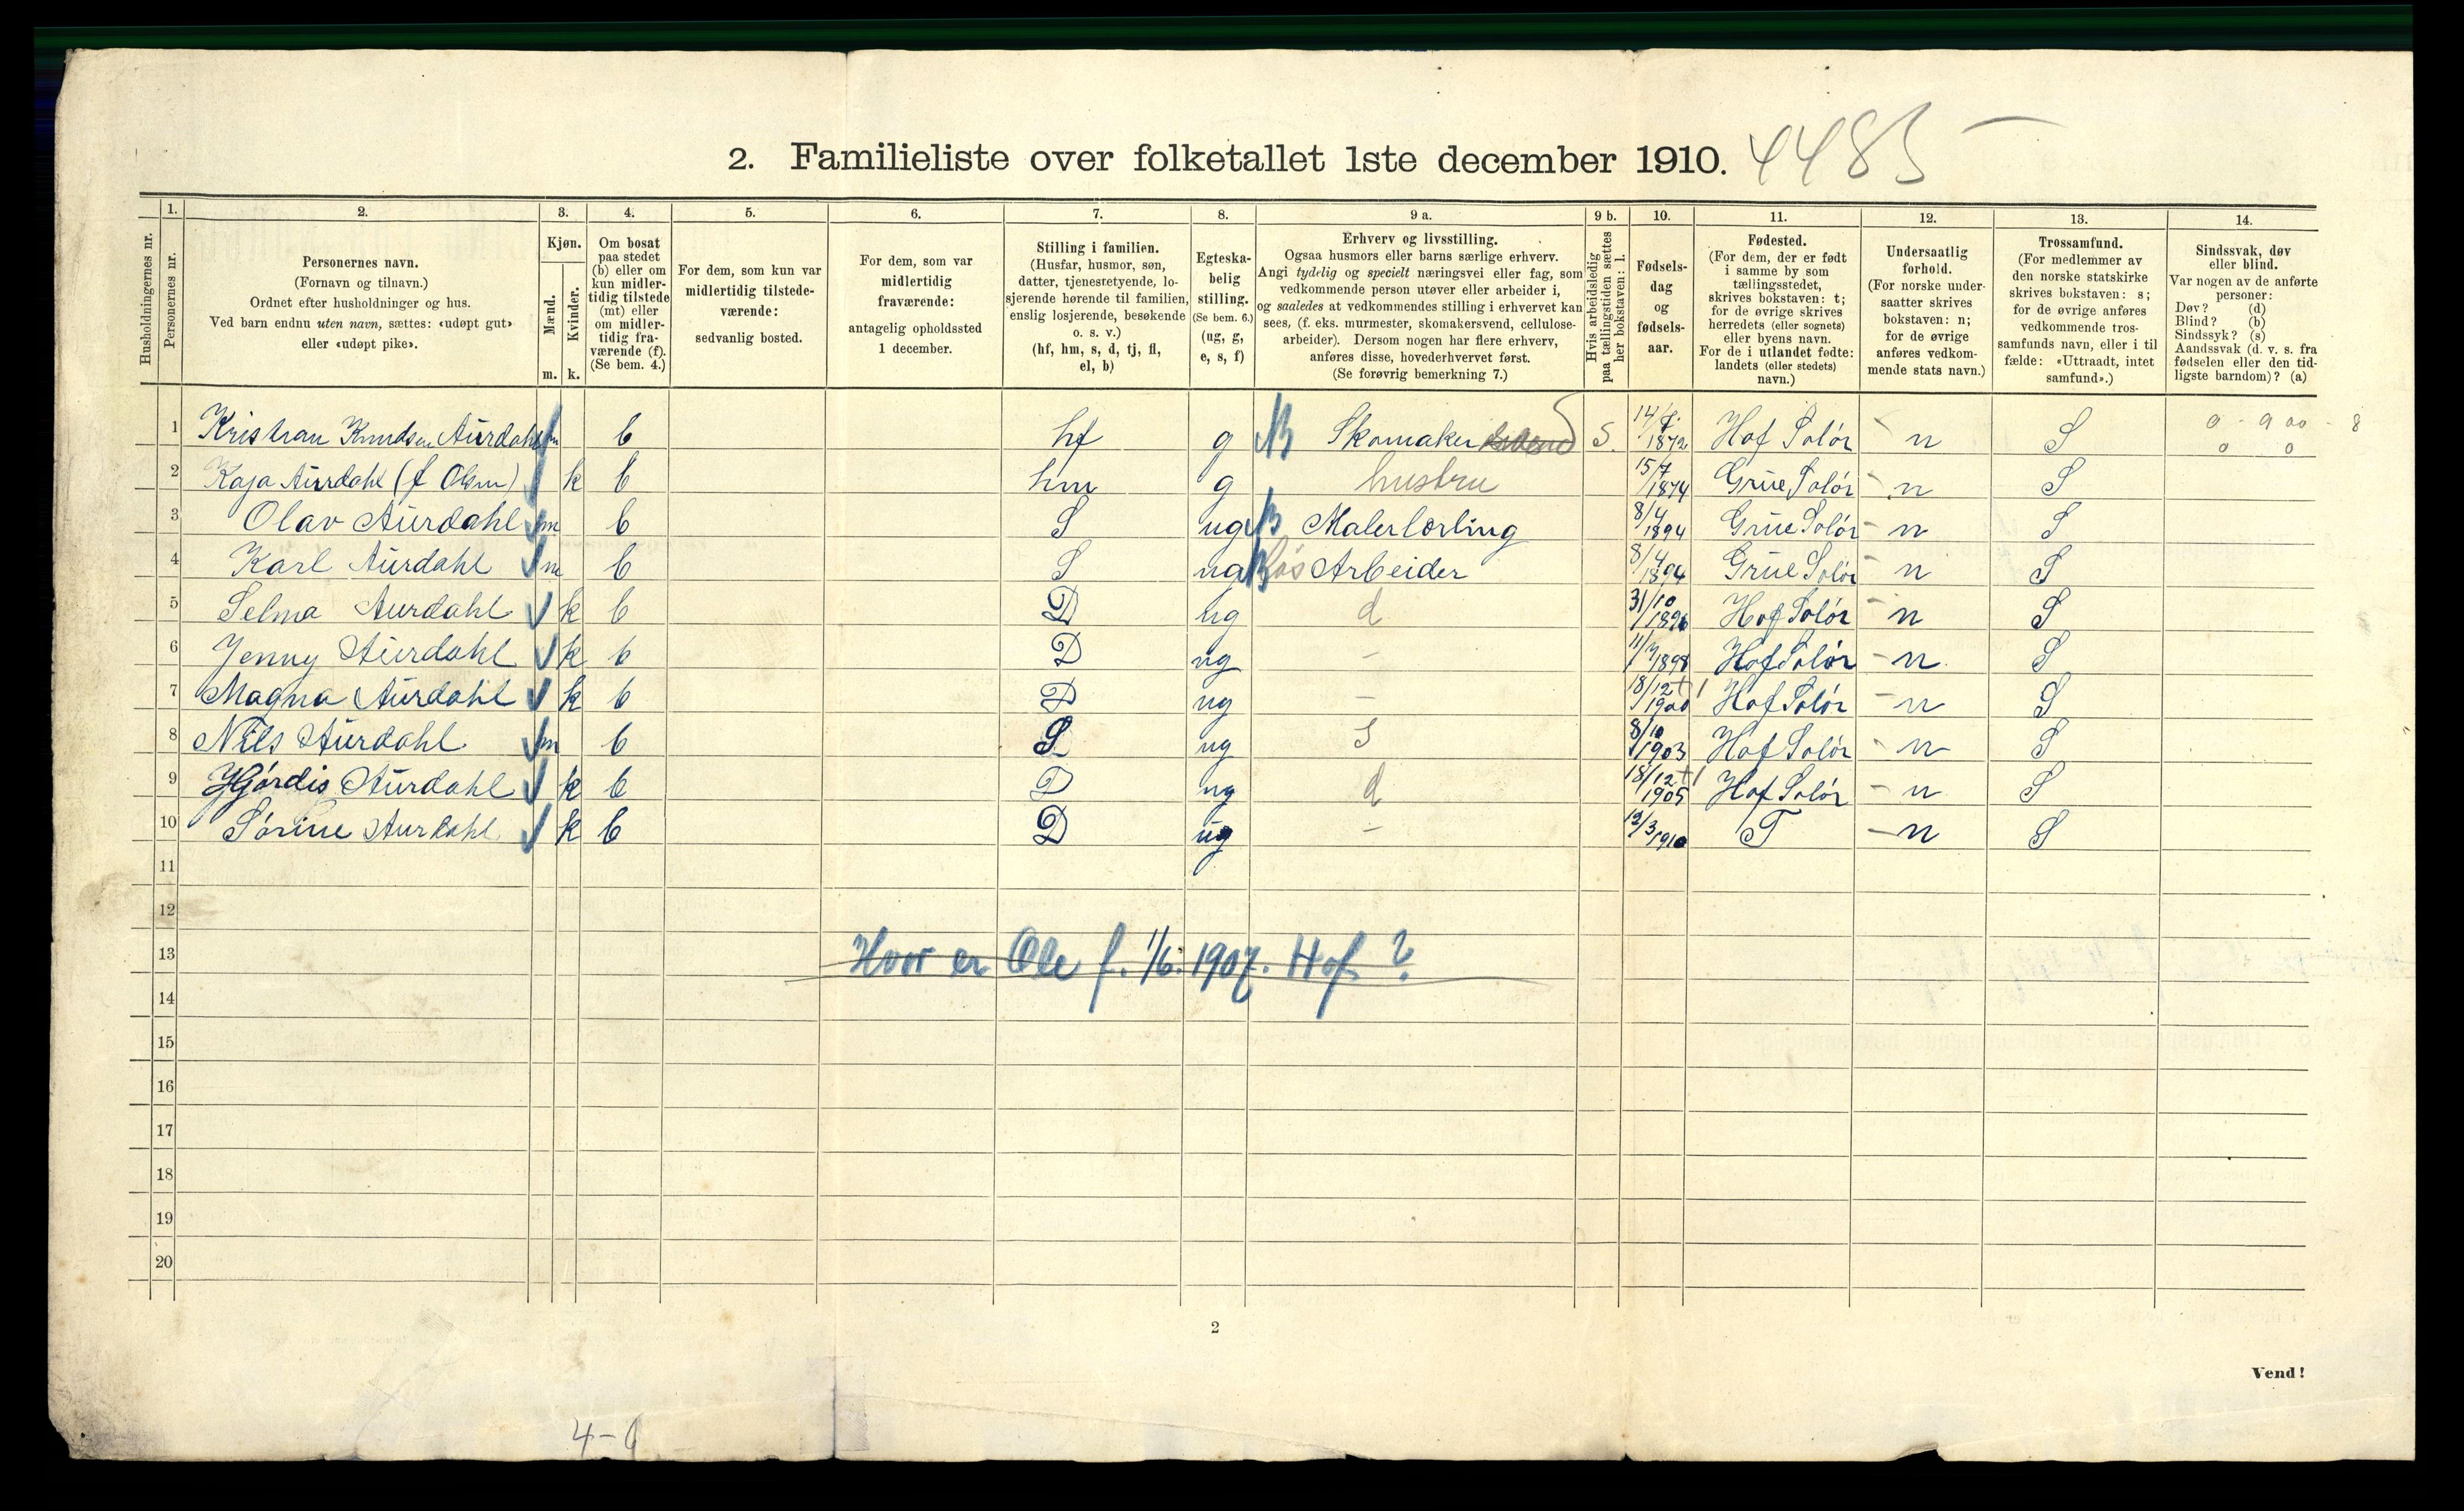 2. Familieliste over folketallet 1ste december 1910. 4485 –
Husholdningernes nr.
1. Personernes nr.
2. Personernes navn.
(Fornavn og tilnavn.)
Ordnet efter husholdninger og hus.
Ved barn endnu uten navn, sættes: «udøpt gut»
eller «udøpt pike».
3. Kjøn.
Mænd. Kvinder.
m. k.
4. Om bosat
paa stedet
(b) eller om
kun midler-
tidig tilstede
(mt) eller
om midler-
tidig fra-
værende (f).
(Se bem. 4.)
5. For dem, som kun var
midlertidig tilstede-
værende:
sedvanlig bosted.
6. For dem, som var
midlertidig
fraværende:
antagelig opholdssted
1 december.
7. Stilling i familien.
(Husfar, husmor, søn,
datter, tjenestetyende, lo-
sjerende hørende til familien,
enslig losjerende, besøkende
o. s. v.)
(hf, hm, s, d, tj, fl,
el, b)
8. Egteska-
belig
stilling.
(Se bem. 6.)
(ug, g,
e, s, f)
9 a. Erhverv og livsstilling.
Ogsaa husmors eller barns særlige erhverv.
Angi tydelig og specielt næringsvei eller fag, som
vedkommende person utøver eller arbeider i,
og saaledes at vedkommendes stilling i erhvervet kan
sees, (f. eks. murmester, skomakersvend, cellulose-
arbeider). Dersom nogen har flere erhverv,
anføres disse, hovederhvervet først.
(Se forøvrig bemerkning 7.)
9 b. Hvis arbeidsledig
paa tællingstiden sættes
her bokstaven: l.
10. Fødsels-
dag
og
fødsels-
aar.
11. Fødested.
(For dem, der er født
i samme by som
tællingsstedet,
skrives bokstaven: t;
for de øvrige skrives
herredets (eller sognets)
eller byens navn.
For de i utlandet fødte:
landets (eller stedets)
navn.)
12. Undersaatlig
forhold.
(For norske under-
saatter skrives
bokstaven: n;
for de øvrige
anføres vedkom-
mende stats navn.)
13. Trossamfund.
(For medlemmer av
den norske statskirke
skrives bokstaven: s;
for de øvrige anføres
vedkommende tros-
samfunds navn, eller i til
fælde: «Uttraadt, intet
samfund».)
14. Sindssvak, døv
eller blind.
Var nogen av de anførte
personer:
Døv? (d)
Blind? (b)
Sindssyk? (s)
Aandssvak (d. v. s. fra
fødselen eller den tid-
ligste barndom)? (a)
1 Kristian Knudsen Aurdahl m b hf g Skomaker svend S. 1872 Hof Solør n S
2 Kaja Aurdahl (f Olsen) k b hm g hustru 15/7 1874 Grue Solør n S
3 Olav Aurdahl m b S ug Malerlærling 8/4 1894 Grue Solør n S
4 Karl Aurdahl m b S ug Arbeider 8/4 1894 Grue Solør n S
5 Selma Aurdahl k b D ug d 31/10 1896 Hof Solør n S
6 Jenny Aurdahl k b D ug – 1898 Hof Solør – n S
7 Magna Aurdahl k b D ug – 18/12 1900 Hof Solør – n S
8 Nils Aurdahl m b S ug s 8/10 1903 Hof Solør – n S
9 Hjørdis Aurdahl k b D ug d 18/12 1905 Hof Solør – n S
10 Sørine Aurdahl k b D ug – 12/3 1910 T – n S
11
12
13 Hvor er Ole f. 1/6. 1907. Hof ?
14
15
16
17
18
19
20
2
Vend!